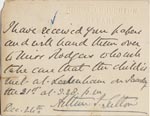 I have received your papers
and will hand them over
to Miss Rodgers who will
take care that the child is
met at Ledenham on Tuesday
the 21st at 3.23 p.m.
William S. Sutton
Dec. 26th